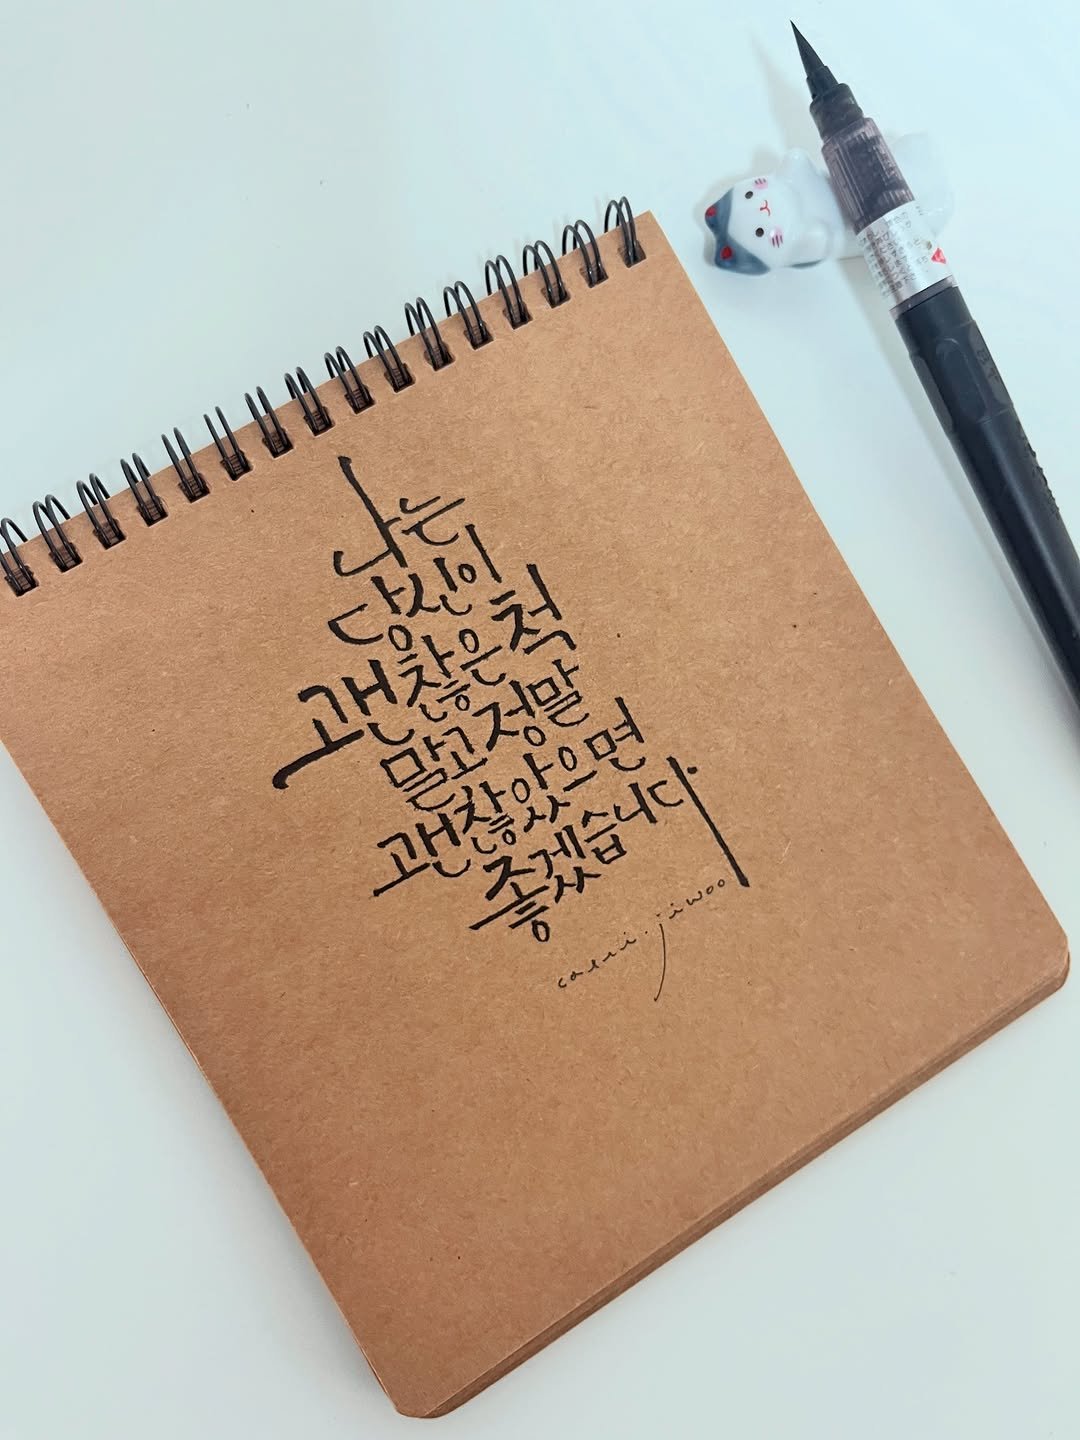 나는
당신이
괜찮은 척
말고 정말
괜찮았으면
좋겠습니다.